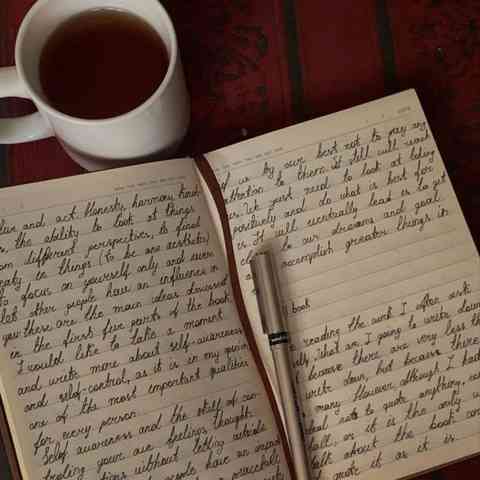 and act. Honesty, harmony, kind
the ability to look at things
from different perspectives, to find
beauty in things (to be one aesthetic)
to focus on yourself only and never
let other people have an influence on
you these are the main ideas discussed
in the first five parts of the book.
I would like to take a moment
and write more about self-awareness
and self-control, as it is in my opinion
one of the most important qualities
for every person.
Self awareness and the skill of con-
troling your own feelings, thoughts,
without letting outside
people have an
peacefully
if we try our best not to pay any
attention to them, it still will reach
us. We just need to look at being
positively and do what is best for
us. It will eventually lead us to get
closer to our dreams and goal
and accomplish greater things in
book
reading the work I often ask
What am I going to write down
because there are very less th
write down, but because there
many. However, although I had
not to quote anything,
as it is the only
talk about the book
quote it as it is.